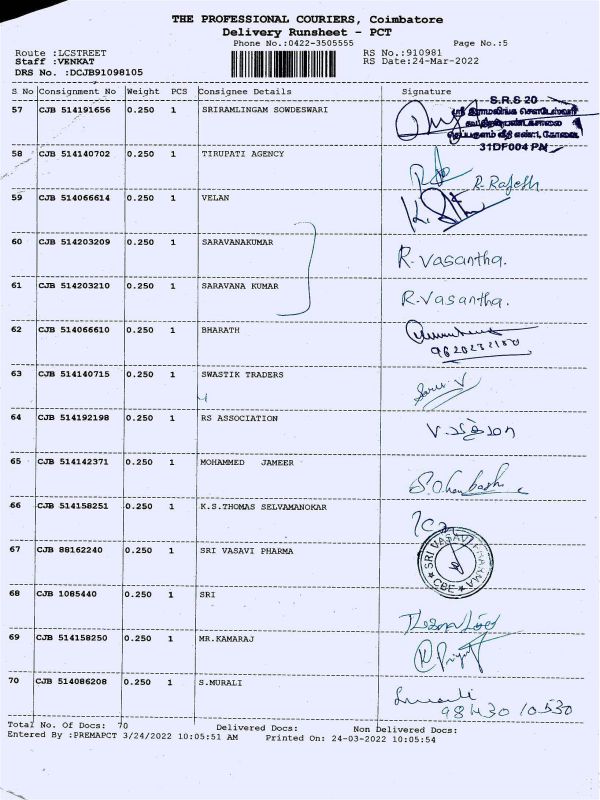 THE PROFESSIONAL COURIERS, Coimbatore
Delivery Runsheet - PCT
Phone No.:0422-3505555 Page No.:5
Route :LCSTREET RS No.:910981
Staff :VENKAT RS Date:24-Mar-2022
DRS No. :DCJB91098105
S No Consignment No Weight PCS Consignee Details Signature
57 CJB 514191656 0.250 1 SRIRAMLINGAM SOWDESWARI
S.R.S 20
ஸ்ரீ இராமலிங்க சௌடேஸ்வரி
கூட்டுறவு பண்டகசாலை
தெப்பகுளம் வீதி எண்:1, கோவை
31DF004 PN
58 CJB 514140702 0.250 1 TIRUPATI AGENCY
R. Rajesh
59 CJB 514066614 0.250 1 VELAN
60 CJB 514203209 0.250 1 SARAVANAKUMAR R. Vasantha.
61 CJB 514203210 0.250 1 SARAVANA KUMAR R. Vasantha.
62 CJB 514066610 0.250 1 BHARATH
63 CJB 514140715 0.250 1 SWASTIK TRADERS
64 CJB 514192198 0.250 1 RS ASSOCIATION
65 CJB 514142371 0.250 1 MOHAMMED JAMEER
66 CJB 514158251 0.250 1 K.S.THOMAS SELVAMANOKAR
67 CJB 88162240 0.250 1 SRI VASAVI PHARMA
SRI VASAVI PHARMA ★ CBE ★
68 CJB 1085440 0.250 1 SRI
69 CJB 514158250 0.250 1 MR.KAMARAJ
70 CJB 514086208 0.250 1 S.MURALI
98430 10530
Total No. Of Docs: 70 Delivered Docs: Non Delivered Docs:
Entered By :PREMAPCT 3/24/2022 10:05:51 AM Printed On: 24-03-2022 10:05:54